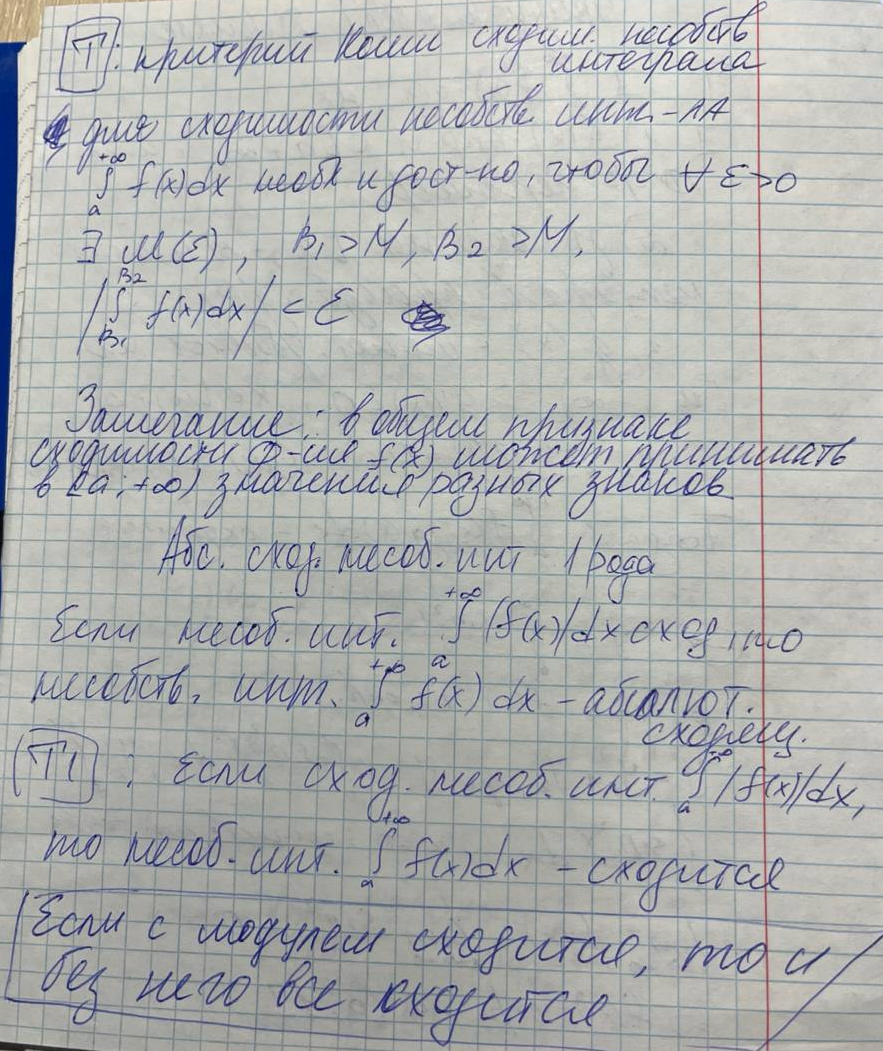 Т: критерий Коши сходим. несобств
интеграла
для сходимости несобств инт-ЛА
∫ₐ^{+∞} f(x)dx необх и дост-но, чтобы ∀ ε>0
∃ M(ε), B₁>M, B₂>M,
|∫_{B₁}^{B₂} f(x)dx| < ε
Замечание: в общем признаке
сходимости ф-ия f(x) может принимать
в [a;+∞) значения разных знаков
Абс. сход. несоб. инт 1 рода
Если несоб. инт. ∫ₐ^{+∞} |f(x)|dx сход, то
несобств. инт. ∫ₐ^{+∞} f(x) dx - абсалют.
сходящ.
Т1: Если сход. несоб. инт. ∫ₐ^{+∞} |f(x)|dx,
то несоб. инт. ∫ₐ^{+∞} f(x)dx - сходится
Если с модулем сходится, то и
без него все сходится